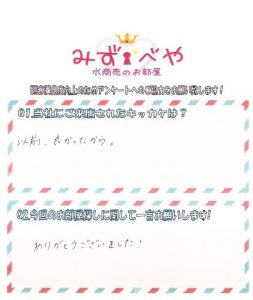 みずべや
水商売のお部屋
顧客満足度向上のためアンケートへのご協力をお願い致します!
Q1.当社にご来店されたキッカケは?
以前、良かったから。
Q2.今回のお部屋探しに関して一言お願いします!
ありがとうございました!